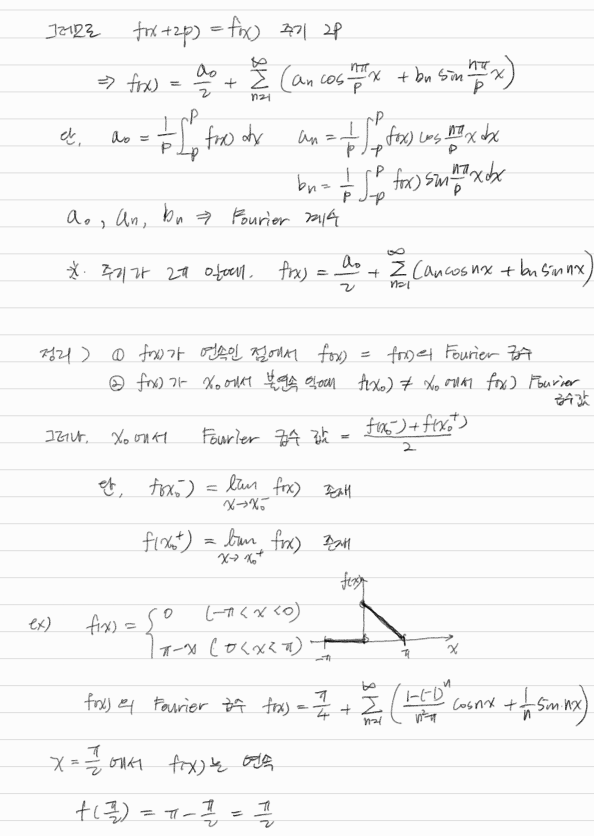 그러므로 f(x+2p) = f(x) 주기 2p
⇒ f(x) = a₀/2 + ∑_{n=1}^{∞} (aₙ cos nπ/p x + bₙ sin nπ/p x)
단, a₀ = 1/p ∫_{-p}^{p} f(x) dx aₙ = 1/p ∫_{-p}^{p} f(x) cos nπ/p x dx
bₙ = 1/p ∫_{-p}^{p} f(x) sin nπ/p x dx
a₀, aₙ, bₙ ⇒ Fourier 계수
※. 주기가 2π 일때. f(x) = a₀/2 + ∑_{n=1}^{∞} (aₙ cos nx + bₙ sin nx)
정리 > ① f(x)가 연속인 점에서 f(x) = f(x)의 Fourier 급수
② f(x)가 x₀에서 불연속 일때 f(x₀) ≠ x₀에서 f(x) Fourier
급수값
그러나, x₀에서 Fourier 급수 값 = (f(x₀⁻) + f(x₀⁺))/2
단, f(x₀⁻) = lim_{x→x₀⁻} f(x) 존재
f(x₀⁺) = lim_{x→x₀⁺} f(x) 존재
f(x)
ex) f(x) = { 0 (-π < x < 0)
π-x (0 < x < π)
-π π x
f(x)의 Fourier 급수 f(x) = π/4 + ∑_{n=1}^{∞} ((1-(-1)ⁿ)/(n²π) cos nx + 1/n sin nx)
x = π/2 에서 f(x)는 연속
f(π/2) = π - π/2 = π/2